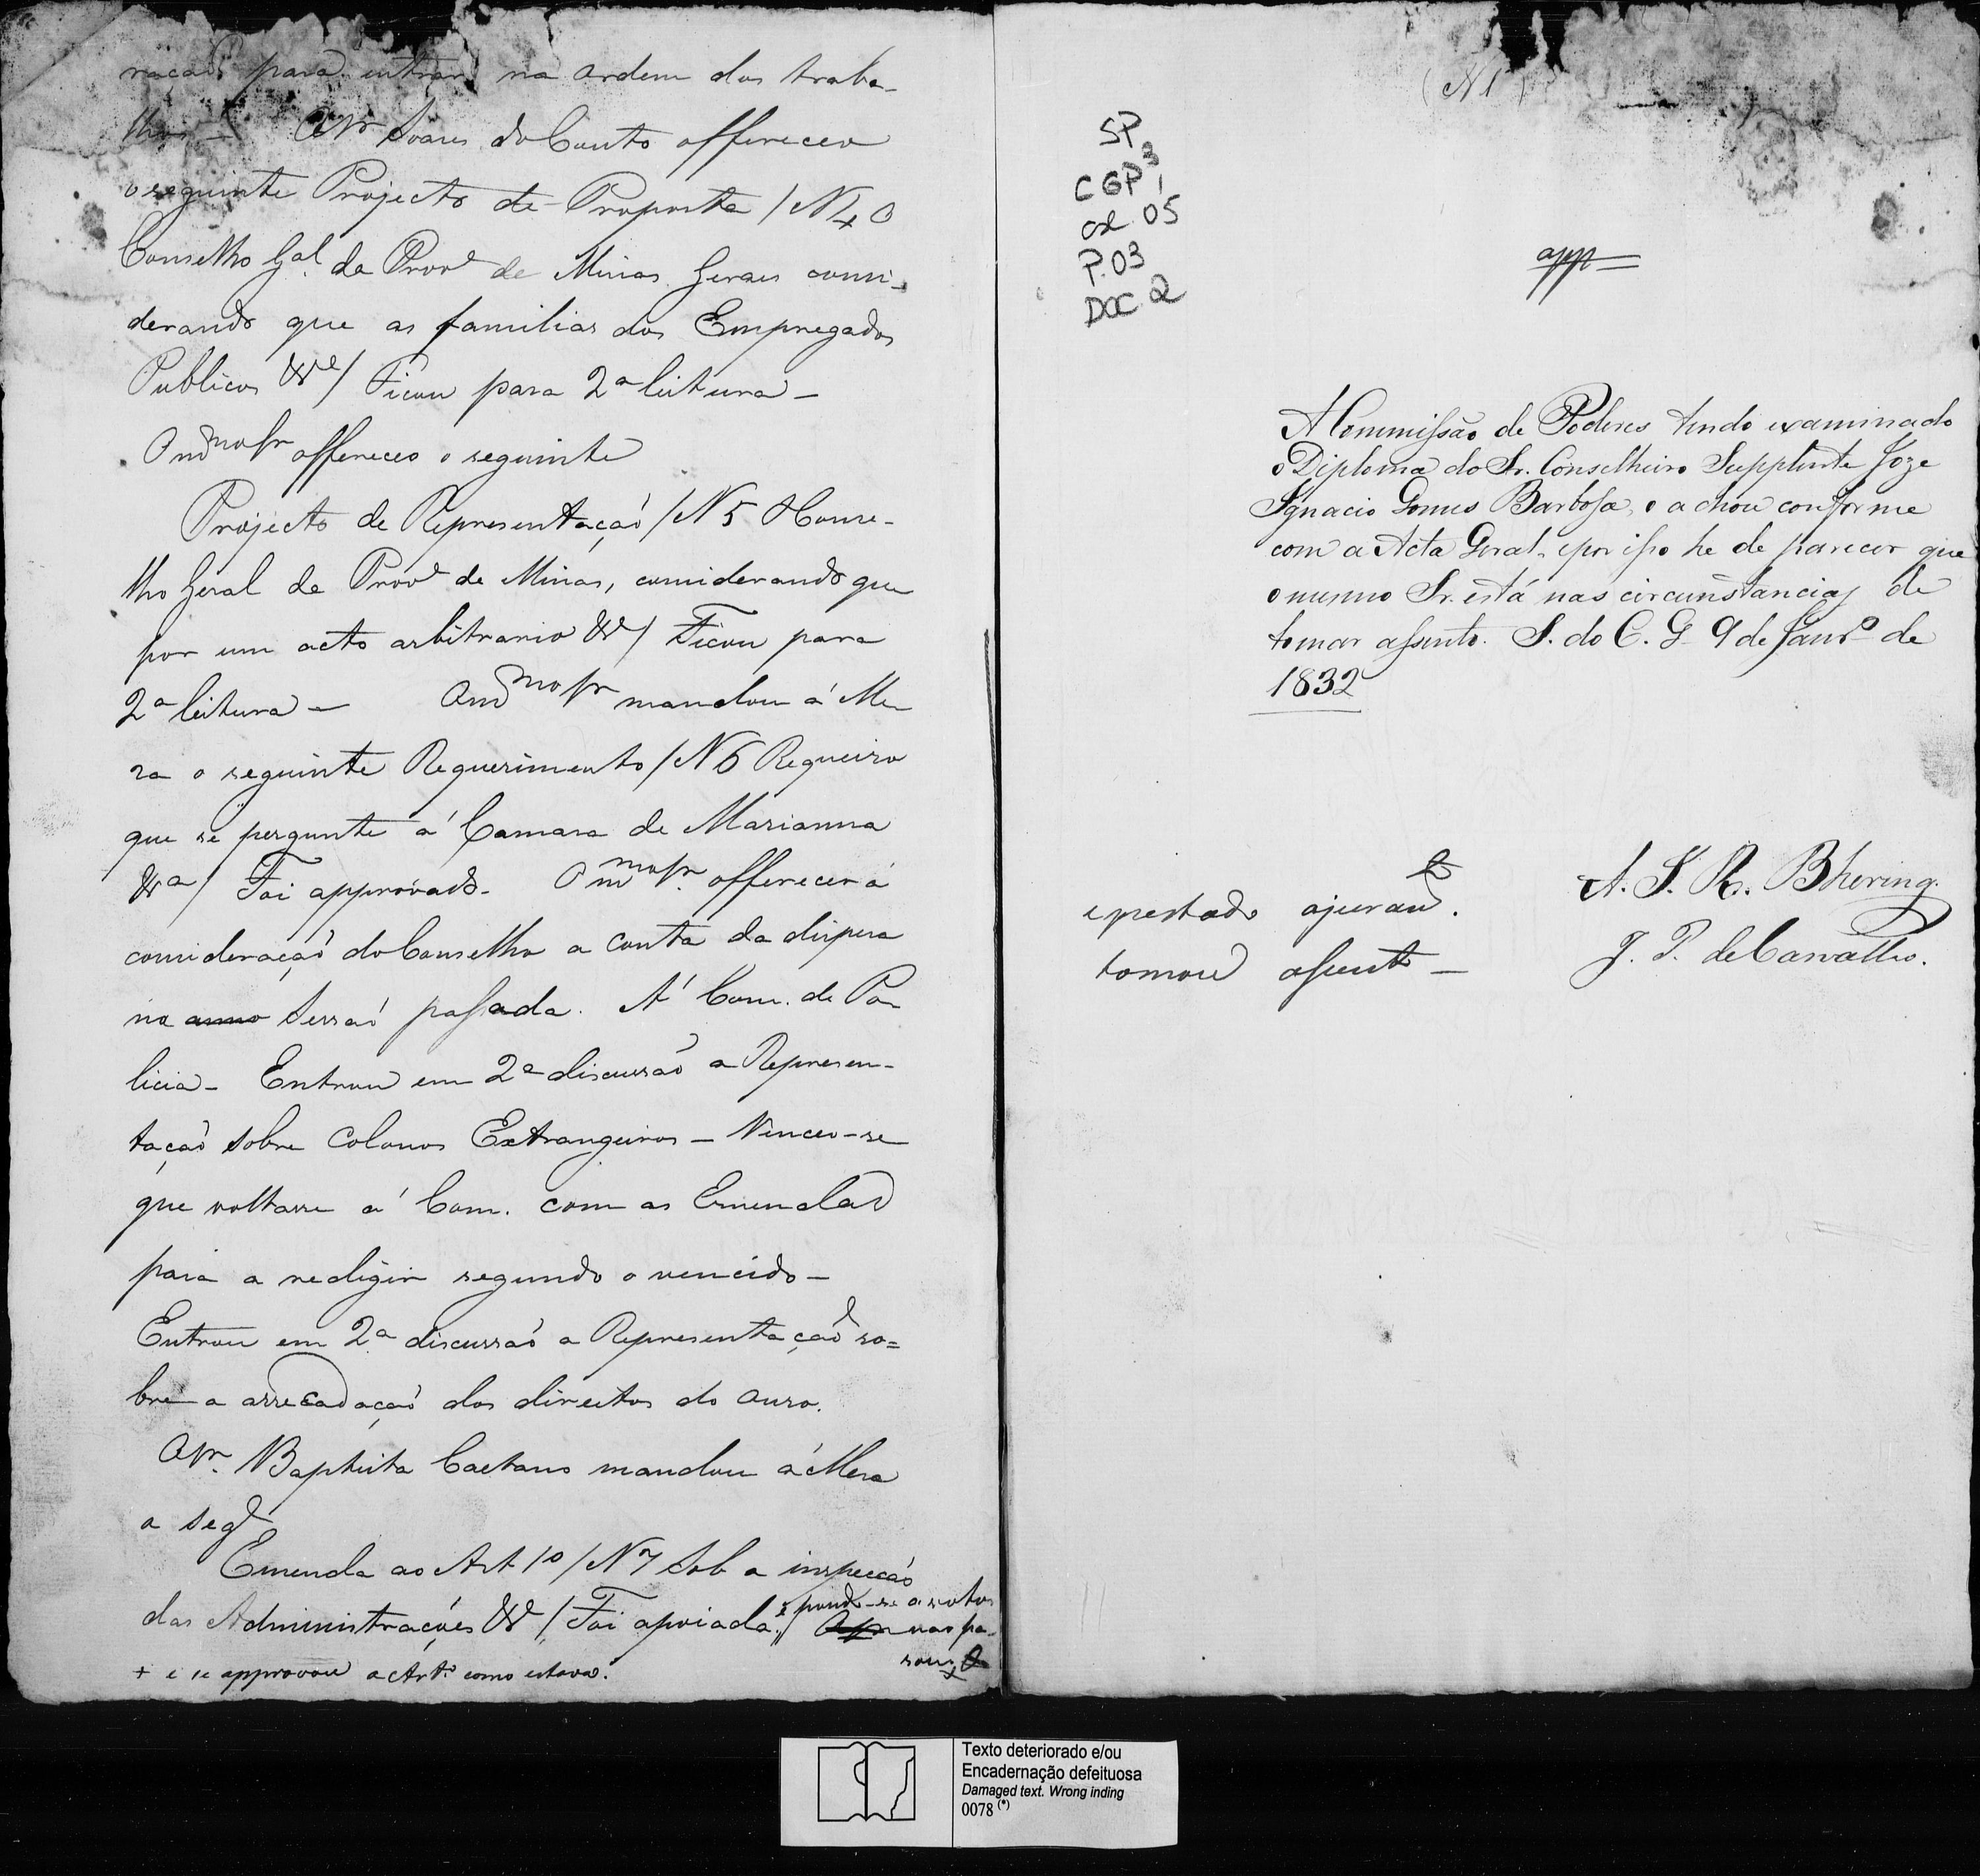 ração para entrar na ordem dos traba-
lhos - O Sr Soares do Couto offereceo
o seguinte Projecto de Proposta / N 4 O
Conselho Gal da Prove de Minas Geraes consi-
derando que as familias dos Empregados
Publicos &e / Ficou para 2ª leitura -
O mesmo Sr offereceo o seguinte
Projecto de Representação / N 5 O Conse-
lho Geral da Prove de Minas, considerando que
por um acto arbitrario & / Ficou para
2ª leitura - O mesmo Sr mandou á Me
za o seguinte Requerimento / N 6 Requeiro
que se pergunte á Camara de Marianna
&a / Foi approvado. O mmo Sr. offereceo á
consideração do Conselho a conta da dispesa
na anno Sessaõ passada. Á Com. de Po
licia - Entrou em 2ª discussão a Represen-
taçaõ sobre Colonos Extrangeiros - Venceo-se
que voltasse á Com. com as Emendas
para a redigir segundo o vencido -
Entrou em 2ª discussaõ a Representação so=
bre a arrecadaçaõ dos direitos do ouro.
O Sr. Baptista Caetano mandou á Mesa
a sege
Emenda ao Art 1º / N 7 Sob a inspecçaõ
das Administrações & / Foi apoiada, e pondo-se a votos
não pa-
sou +
+ e se approvou o Artº como estava.
(N 1)
SP
CGP 3
1
cx. 05
P. 03
DOC 2
app
A Commissão de Poderes tendo examinado
o Diploma do Sr. Conselheiro Supplente Joze
Ignacio Gomes Barbosa, o achou conforme
com a Acta Geral, e por isso he de parecer que
o mesmo Sr. está nas circunstancias de
tomar assento. S. do C. G. 9 de Janrº de
1832
A. J. R. Bhering.
J. P. de Carvalho.
e prestado o juramto.
tomou assento -
Texto deteriorado e/ou
Encadernação defeituosa
Damaged text. Wrong inding
0078 (*)